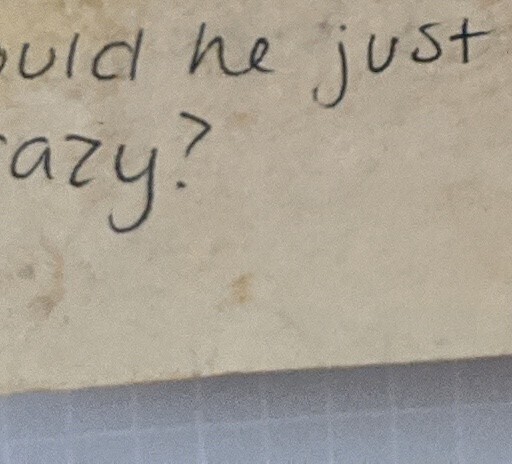 ould he just
azy?